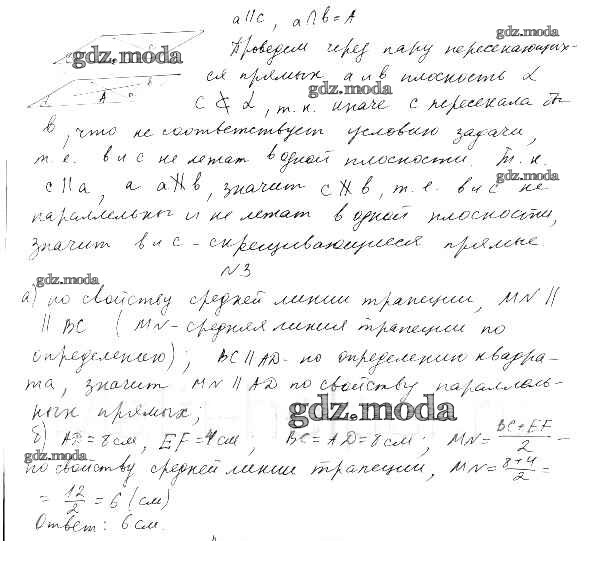 a||c, a∩b=A
Проведем через пару пересекающих-
ся прямых a и b плоскость α
c ⊄ α, т.к. иначе c пересекала бы
b, что не соответствует условию задачи,
т.е. b и c не лежат в одной плоскости. Т.к.
c||a, а a∦b, значит c∦b, т.е. b и c не
параллельны и не лежат в одной плоскости,
значит b и c - скрещивающиеся прямые
A a b
N3
а) по свойству средней линии трапеции, MN ||
|| BC (MN - средняя линия трапеции по
определению); BC || AD - по определению квадра-
та, значит MN || AD по свойству параллель-
ных прямых;
б) AD = 8 см, EF = 4 см, BC = AD = 8 см; MN = (BC+EF)/2 -
по свойству средней линии трапеции, MN = (8+4)/2 =
= 12/2 = 6 (см)
Ответ: 6 см.
gdz.moda
gdz.moda
gdz.moda
gdz.moda
gdz.moda
gdz.moda
gdz.moda